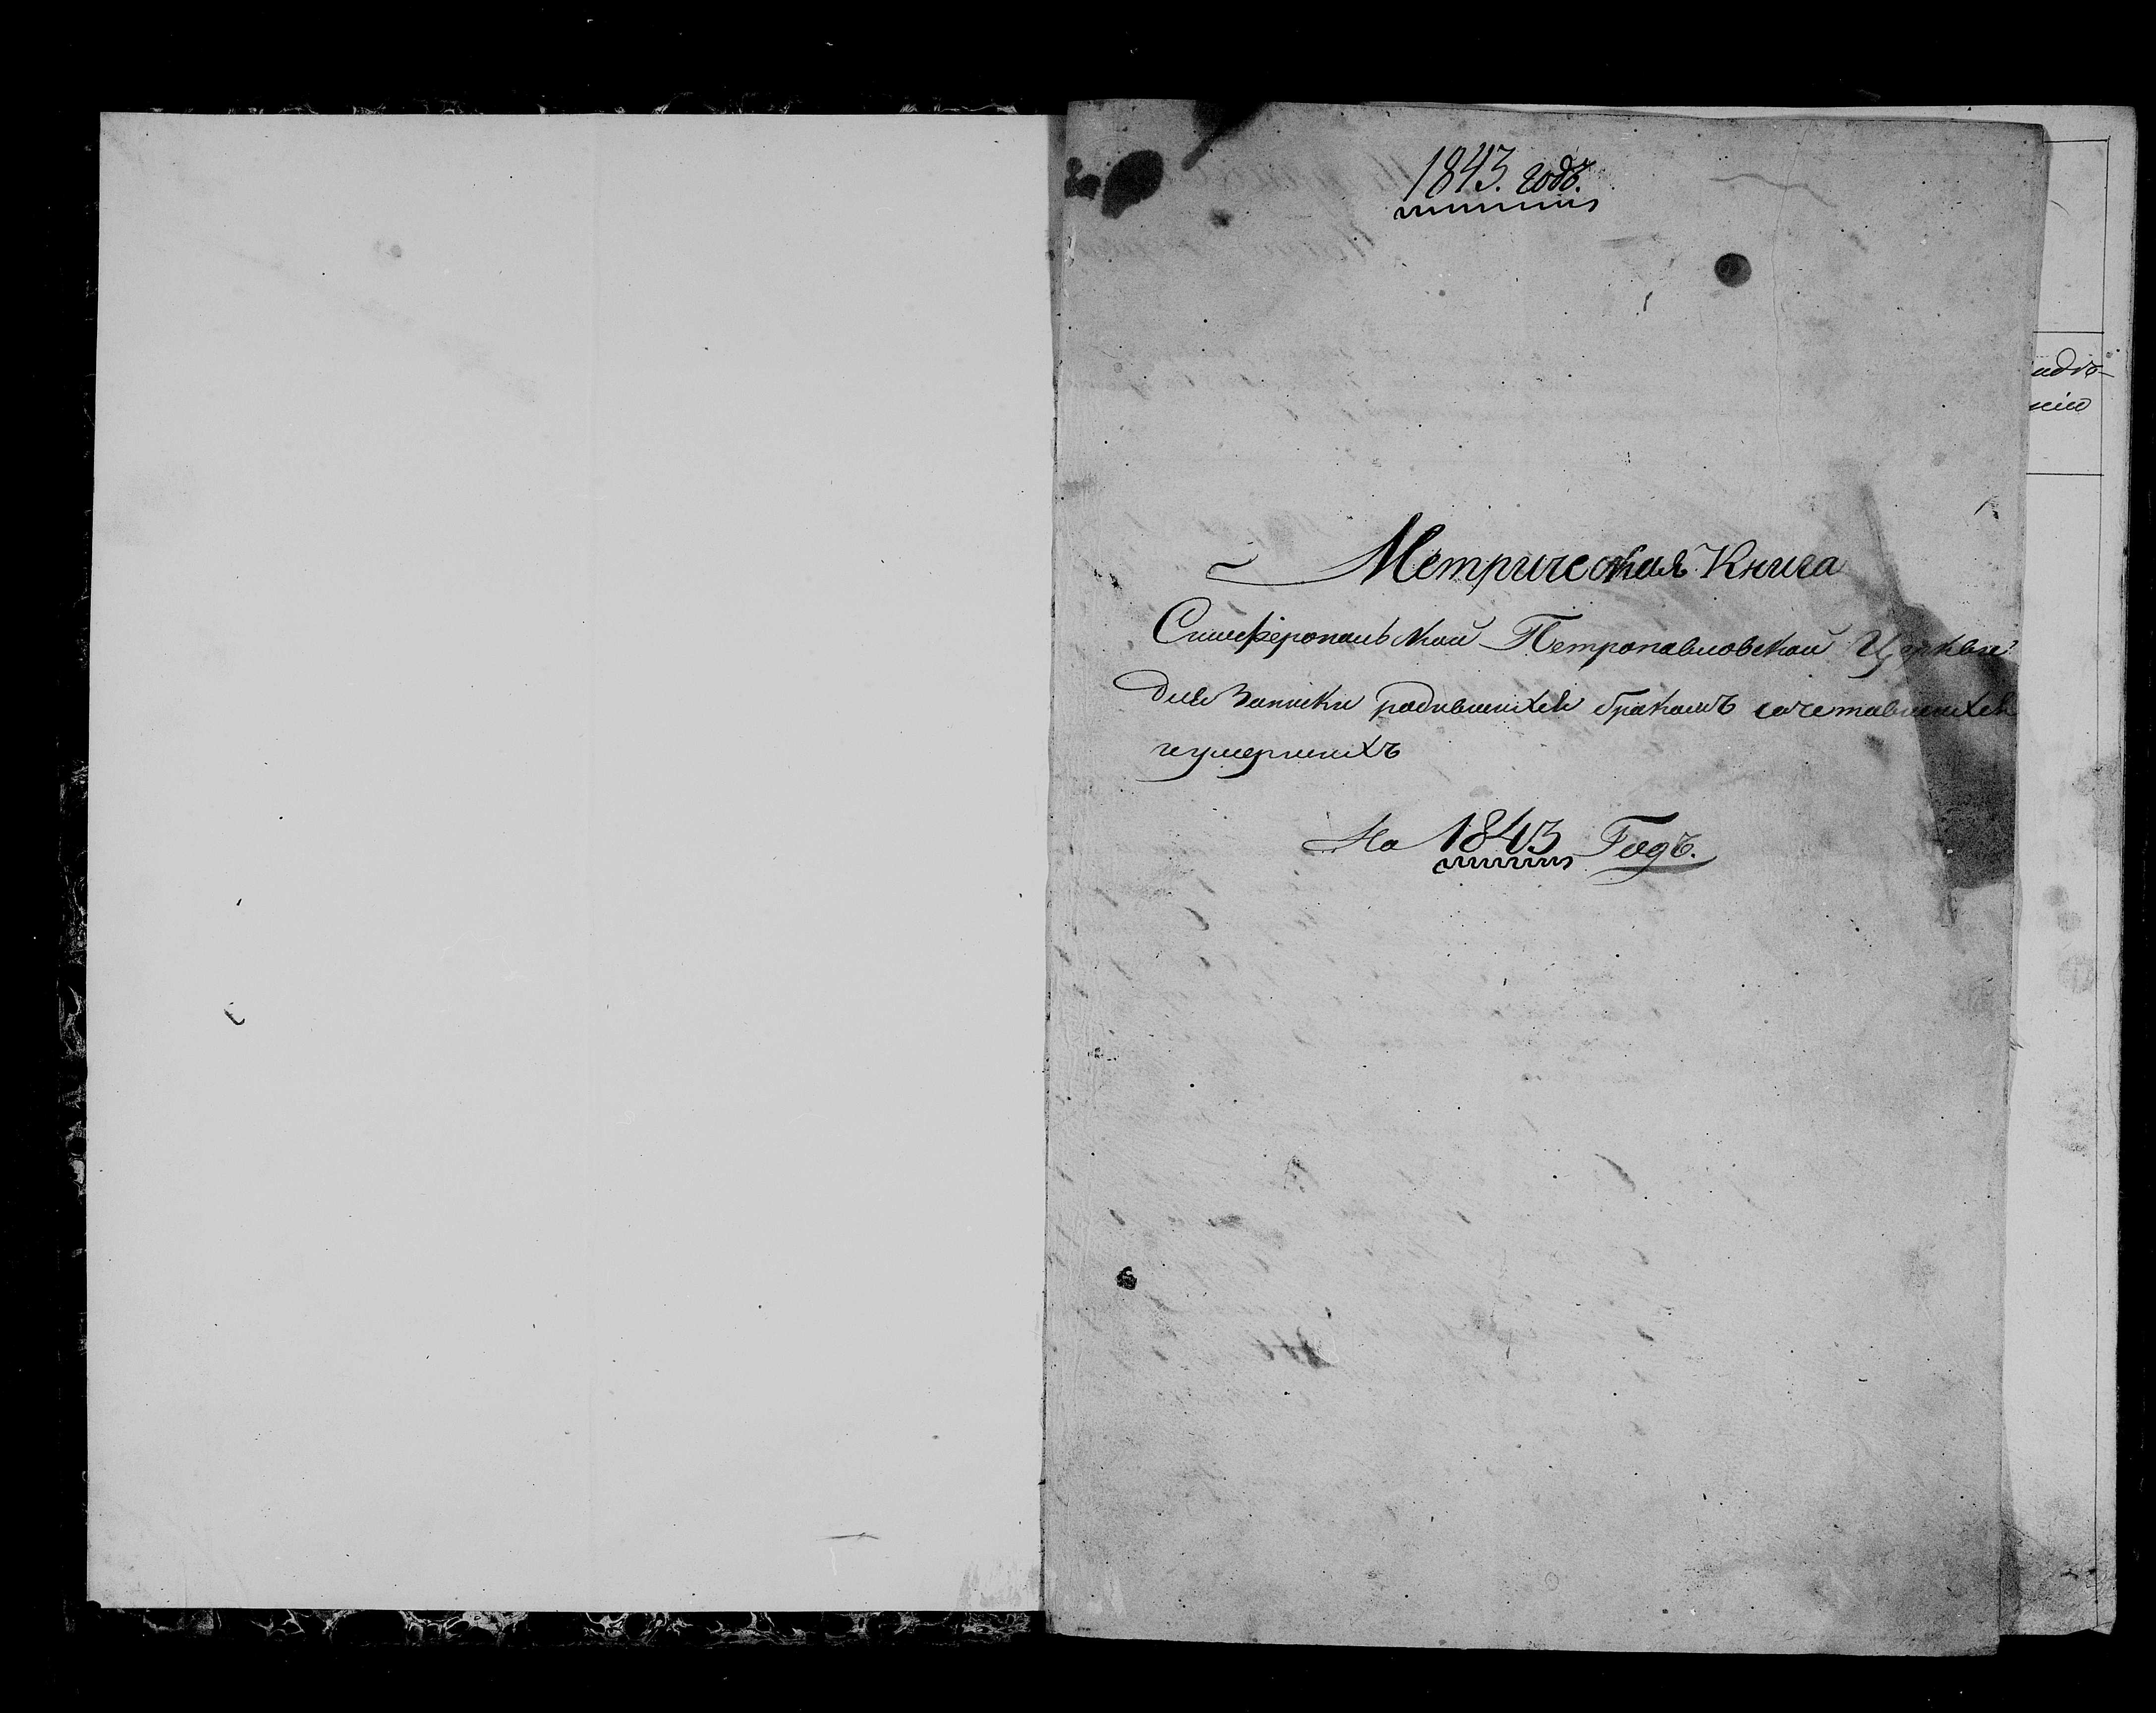 1843. годъ.
Метрическая Книга
Симферопольской Петропавловской Церкви
для Записки родившихся бракомъ сочетавшихся
и умершихъ
На 1843 Годъ.